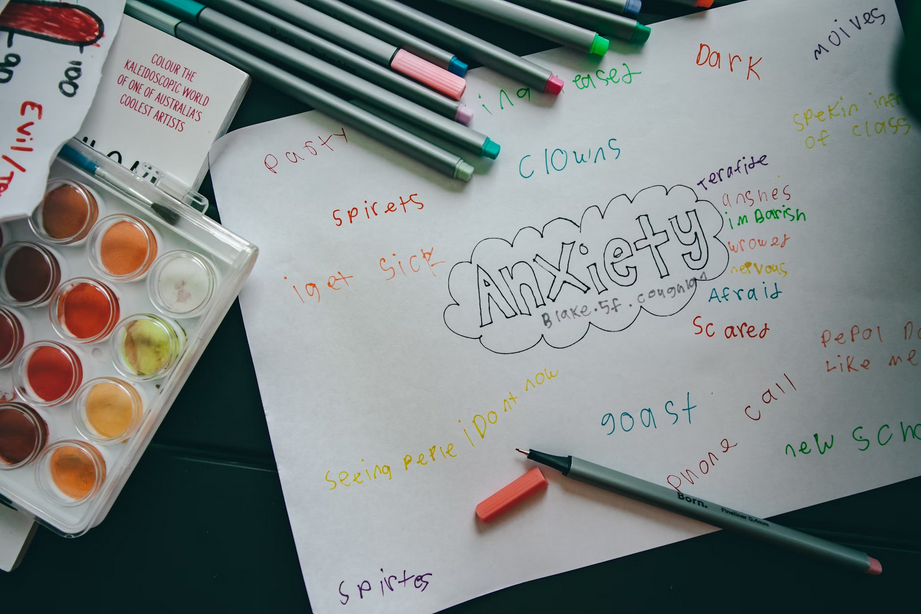 -90
-100
Evil/
COLOUR THE
KALEIDOSCOPIC WORLD
OF ONE OF AUSTRALIA'S
COOLEST ARTISTS
party
ing
easet
Dark
moives
spekin
of class
clowns
spirets
iget sick
Anxiety
Blake.5f.coughlan
Terafite
anshes
imBarish
wrowet
nervous
Afraid
Scared
pepol
Like me
seeing peple iDont now
goast
phone call
new scho
Born.
spirtes